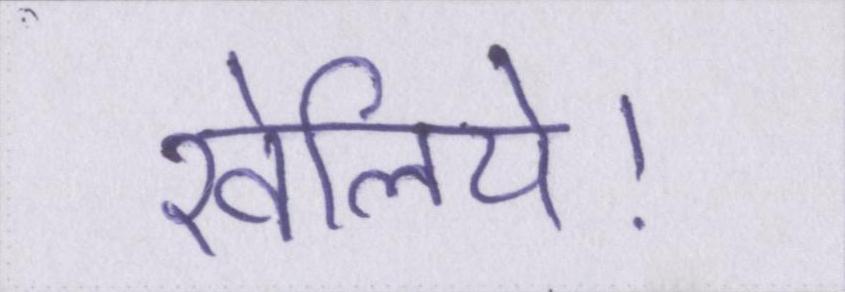 खेलिये!